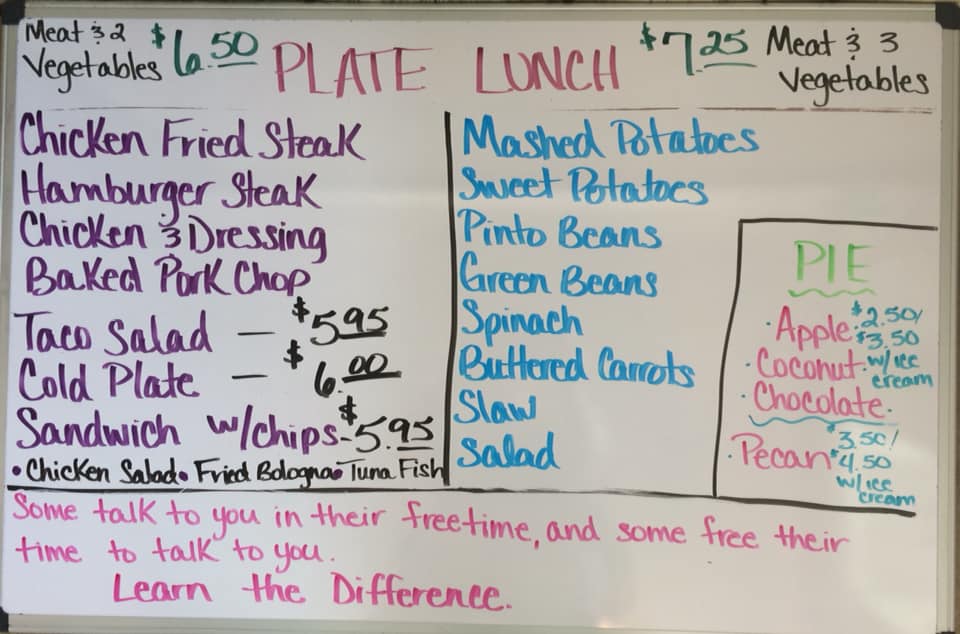 Meat & 2 Vegetables $6.50
PLATE LUNCH
$7.25 Meat & 3 Vegetables
Chicken Fried Steak
Hamburger Steak
Chicken & Dressing
Baked Pork Chop
Taco Salad — $5.95
Cold Plate — $6.00
Sandwich w/chips - $5.95
• Chicken Salad • Fried Bologna • Tuna Fish
Mashed Potatoes
Sweet Potatoes
Pinto Beans
Green Beans
Spinach
Buttered Carrots
Slaw
Salad
PIE
· Apple · $2.50/
· Coconut · $3.50 w/ice cream
· Chocolate ·
· Pecan $3.50/
$4.50
w/ice
cream
Some talk to you in their freetime, and some free their
time to talk to you.
Learn the Difference.